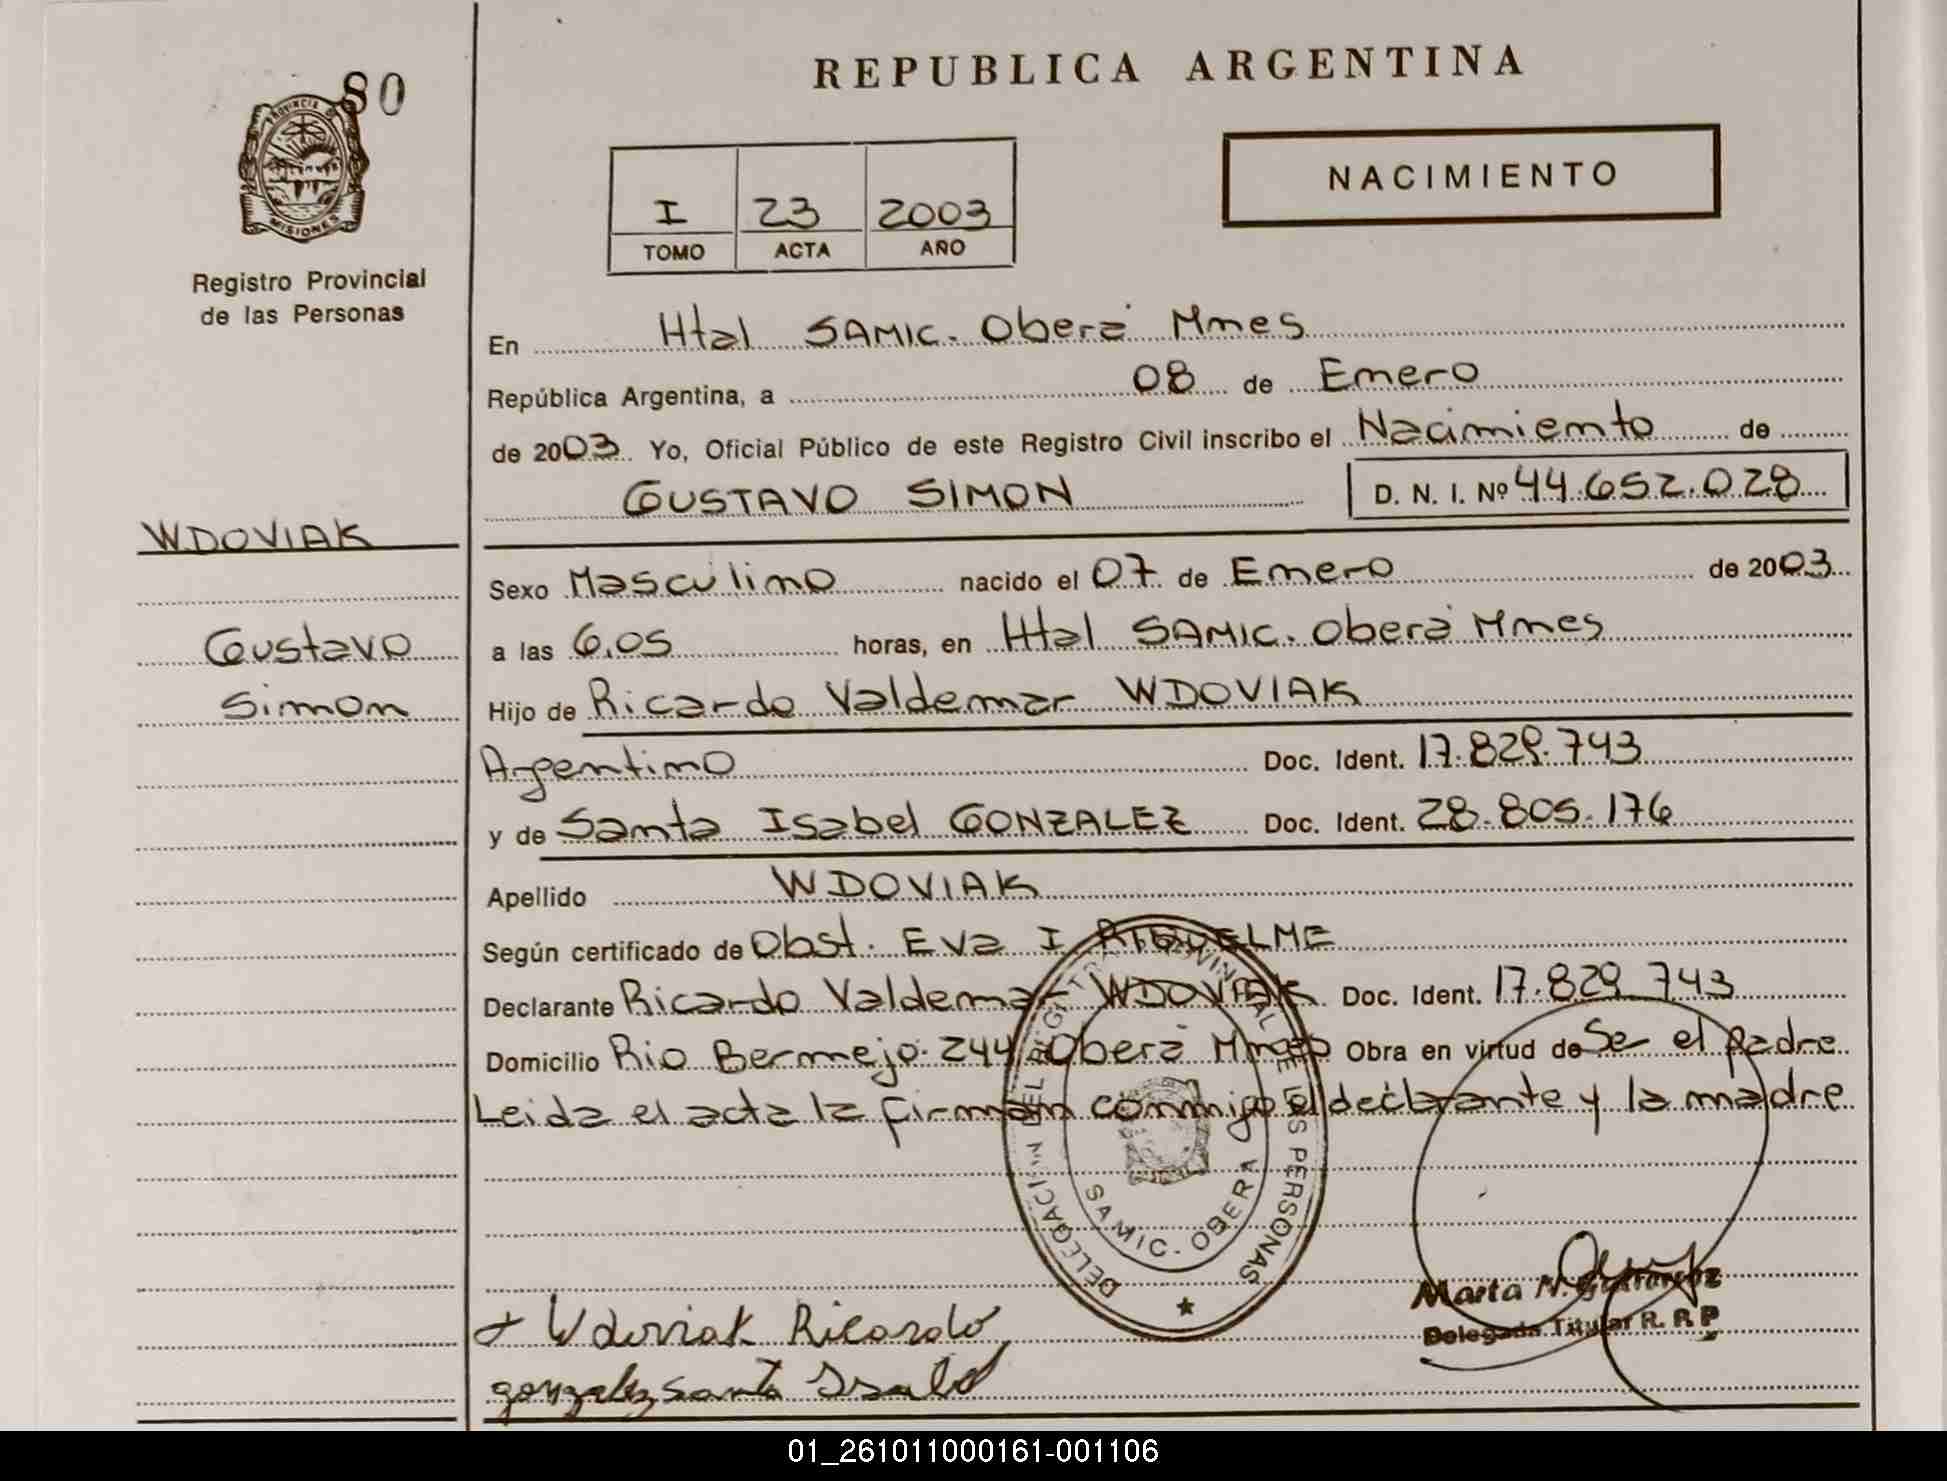 80
PROVINCIA DE
MISIONES
Registro Provincial
de las Personas
REPUBLICA ARGENTINA
NACIMIENTO
I 23 2003
TOMO ACTA AÑO
En Htal SAMIC. Oberá Mnes
República Argentina, a 08 de Enero
de 2003. Yo, Oficial Público de este Registro Civil inscribo el Nacimiento de
GUSTAVO SIMON D. N. I. Nº 44.652.028
WDOVIAK
Gustavo
Simon
Sexo Masculino nacido el 07 de Enero de 2003
a las 6.05 horas, en Htal SAMIC. Oberá Mnes
Hijo de Ricardo Valdemar WDOVIAK
Argentino Doc. Ident. 17.829.743
y de Santa Isabel GONZALEZ Doc. Ident. 28.805.176
Apellido WDOVIAK
Según certificado de Obst. Eva I RIQUELME
Declarante Ricardo Valdemar WDOVIAK Doc. Ident. 17.829.743
Domicilio Rio Bermejo. 244 Oberá Mnes Obra en virtud de Se el padre
Leida el acta la firman conmigo el declarante y la madre
DELEGACION DEL REGISTRO PROVINCIAL DE LAS PERSONAS
SAMIC - OBERA
Marta N.
Delegada Titular R. P. P
+ Wdoviak Ricardo
gonzalez santa Isabel
01_261011000161-001106